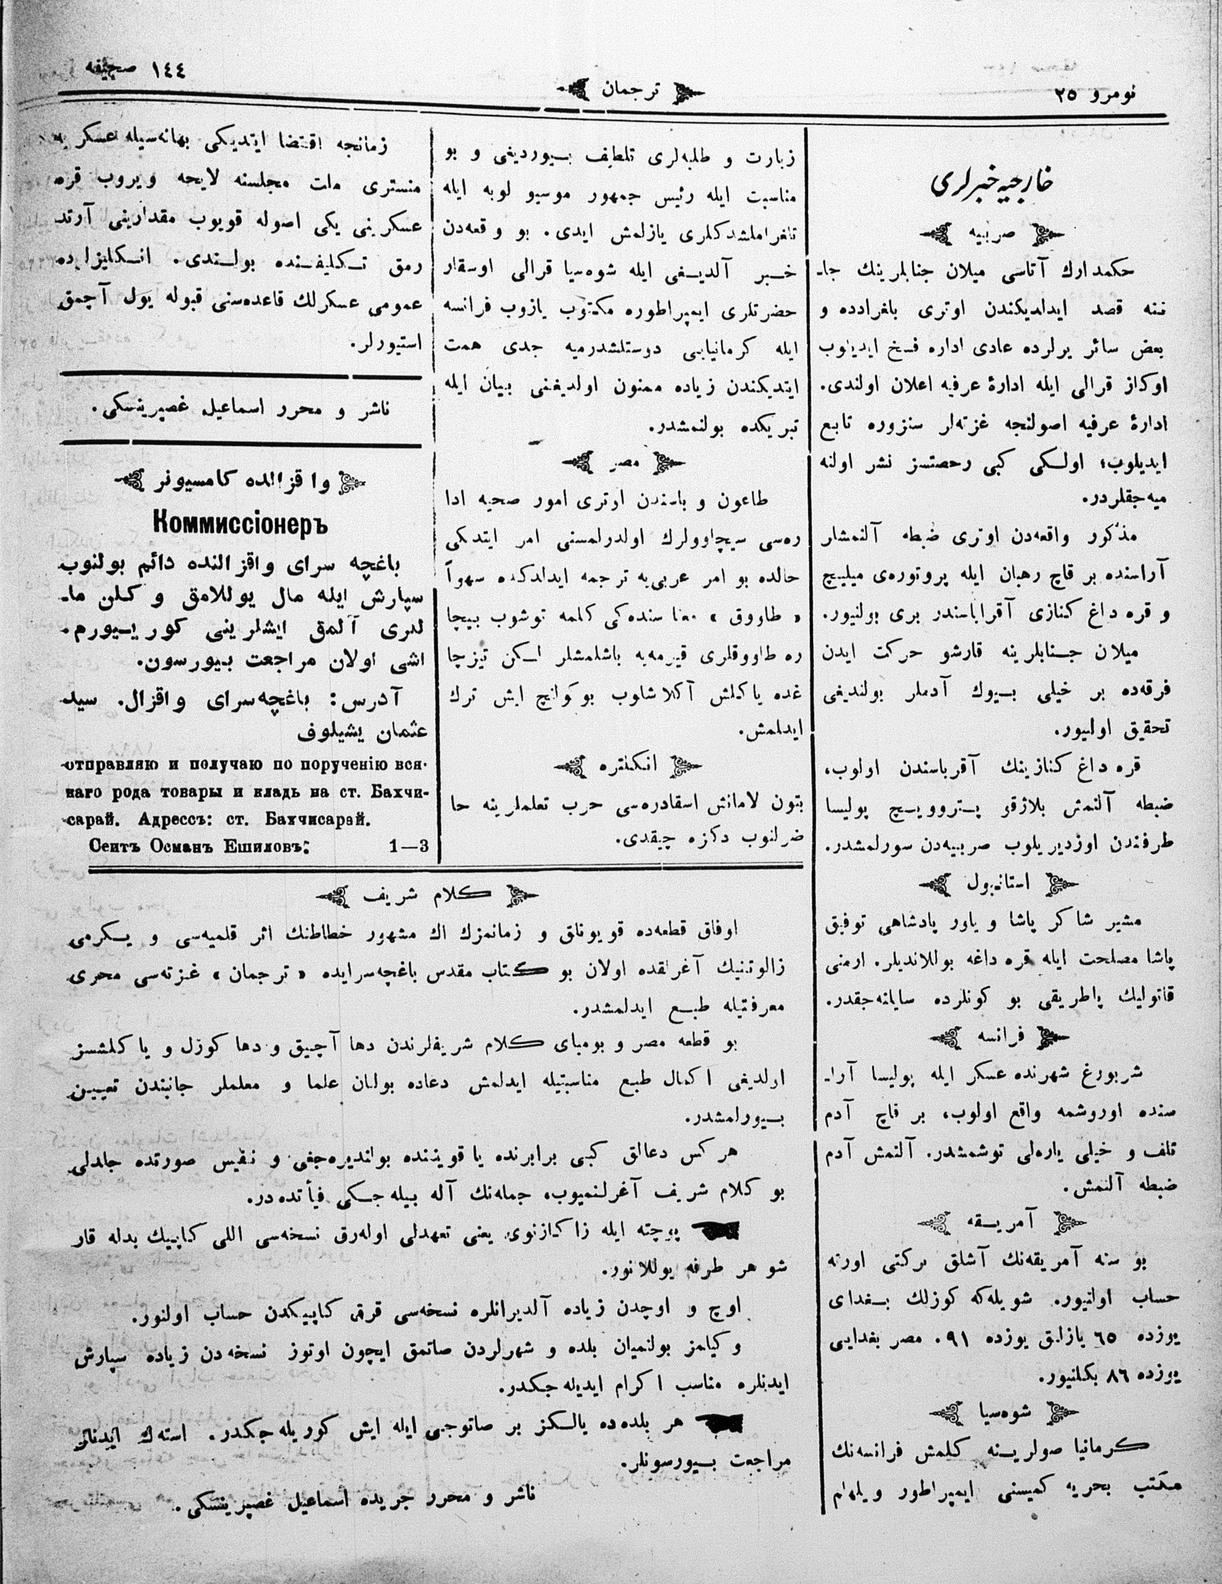 نومرو ٢٥
ترجمان
١٤٤ صحيفه
خارجيه خبرلرى
صربيه
حكمدارك آتاسى ميلان جنابلرينك جا-
ننه قصد ايدلديكندن اوترى باغرادده و
بعض سائر يرلرده عادى اداره فسخ ايديلوب
اوكاز قرالى ايله ادارۀ عرفيه اعلان اولندى.
ادارۀ عرفيه اصولنجه غزته‌لر سنزوره تابع
ايديلوب؛ اولكى كبى رحصتسز نشر اولنه
ميه‌جقلردر.
مذكور واقعه‌دن اوترى ضبطه آلنمشلر
آراسنده بر قاچ رهبان ايله پروتوره‌ى ميلينچ
و قره داغ كنازى آقراباسندر برى بولنيور.
ميلان جنابلرينه قارشو حركت ايدن
فرقه‌ده بر خيلى بيوك آدملر بولنديغى
تحقيق اولنيور.
قره داغ كنازينك آقرباسندن اولوب،
ضبطه آلنمش بلاژقو پتروويچ پوليسا
طرفندن اوزديريلوب صربيه‌دن سورلمشدر.
استانبول
مشير شاكر پاشا و ياور پادشاهى توفيق
پاشا مصلحت ايله قره داغه يوللانديلر. ارمنى
قاتوليك پاطريقى بو كونلرده سايلنه‌جقدر.
فرانسه
شربورغ شهرنده عسكر ايله پوليسا آرا-
سنده اوروشمه واقع اولوب، بر قاچ آدم
تلف و خيلى ياره‌لى توشمشدر. آلتمش آدم
ضبطه آلنمش.
آمريقه
بو سنه آمريقه‌نك آشلق بركتى اورته
حساب اولنيور. شويله‌كه كوزلك بغداى
يوزده ٦٥ يازلق يوزده ٩١. مصر بغدايى
يوزده ٨٦ بكلنيور.
شوه‌سيا
كرمانيا صولرينه كلمش فرانسه‌نك
مكتب بحريه كميسنى ايمپراطور ويلهلم
زيارت و طلبه‌لرى تلطيف بيورديغى و بو
مناسبت ايله رئيس جمهور موسيو لوبه ايله
تلغراملشدكلرى يازلمش ايدى. بو وقعه‌دن
خبر آلديغى ايله شوه‌سيا قرالى اوسقار
حضرتلرى ايمپراطوره مكتوب يازوب فرانسه
ايله كرمانيايى دوستلشدرميه جدى همت
ايتديكندن زياده ممنون اولديغنى بيان ايله
تبريكده بولنمشدر.
مصر
طاعون و باسندن اوترى امور صحيه ادا
ره‌سى سيچاوولرك اولدرلمسنى امر ايتدكى
حالده بو امر عربى‌يه ترجمه ايدلدكده سهواً
« طاووق » معنا سنده‌كى كلمه توشوب بيچا
ره طاووقلرى قيرمه‌يه باشلمشلر اكن تيزچا
غده ياكلش آكلاشلوب بوكولنچ ايش ترك
ايدلمش.
انكلتره
بتون لامانش اسقادره‌سى حرب تعلملرينه حا
ضرلنوب دكزه چيقدى.
زمانجه اقتضا ايتديكى بهانه‌سيله عسكريه
منسترى ملت مجلسنه لايحه ويروب قره
عسكرينى يكى اصوله قويوب مقدارينى آرتد
رمق تكليفنده بولندى. انكليزلرده
عمومى عسكرلك قاعده‌سنى قبوله يول آچمق
استيورلر.
ناشر و محرر اسماعيل غصپرينسكى.
واقزالده كامسيونر
Коммиссіонеръ
باغچه سراى واقزالنده دائم بولنوب
سپارش ايله مال يوللامق و كلن ما-
للرى آلمق ايشلرينى كوريورم.
اشى اولان مراجعت بيورسون.
آدرس: باغچه‌سراى واقزال. سيد
عثمان يشيلوف
отправляю и получаю по порученію вся-
каго рода товары и кладь на ст. Бахчи-
сарай. Адрессъ: ст. Бахчисарай.
Сеитъ Османъ Ешиловъ: 1—3
كلام شريف
اوفاق قطعه‌ده قويونلق و زمانمزك اك مشهور خطاطنك اثر قلميه‌سى و يكرمى
زالوتنيك آغرلقده اولان بو كتاب مقدس باغچه‌سرايده « ترجمان » غزته‌سى محررى
معرفتيله طبع ايدلمشدر.
بو قطعه مصر و بومباى كلام شريفلرندن دها آچيق و دها كوزل و ياكلشسز
اولديغى اكمال طبع مناسبتيله ايدلمش دعاده بولنان علما و معلملر جانبندن تعيين
بيورلمشدر.
هر كس دعالق كبى برابرنده يا قويننده بولنديره‌جغى و نفيس صورتده جلدلى
بو كلام شريف آغرلنميوب، جمله‌نك آله بيله‌جكى فيأتده‌در.
پوچته ايله زاكازنوى يعنى تعهدلى اوله‌رق نسخه‌سى اللى كاپيك بدله قار
شو هر طرفه يوللانور.
اوچ و اوچدن زياده آلديرانلره نسخه‌سى قرق كاپيكدن حساب اولنور.
وكيلمز بولنميان بلده و شهرلردن صاتمق ايچون اوتوز نسخه‌دن زياده سپارش
ايدنلره مناسب اكرام ايديله‌جكدر.
هر بلده‌ده يالكز بر صاتوجى ايله ايش كوريله‌جكدر. استه‌ك ايدنلر
مراجعت بيورسونلر.
ناشر و محرر جريده اسماعيل غصپرينسكى.